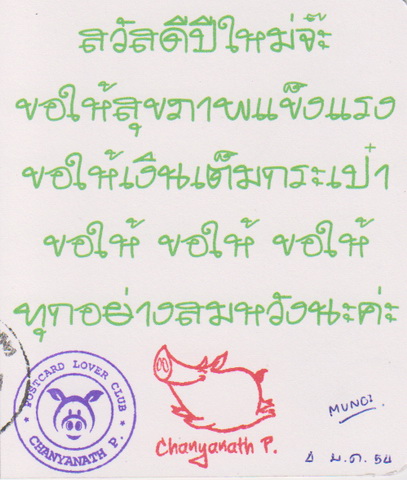 สวัสดีปีใหม่จ๊ะ
ขอให้สุขภาพแข็งแรง
ขอให้เงินเต็มกระเป๋า
ขอให้ ขอให้ ขอให้
ทุกอย่างสมหวังนะค่ะ
POSTCARD LOVER CLUB
CHANYANATH P.
Chanyanath P.
ม.ค. 54